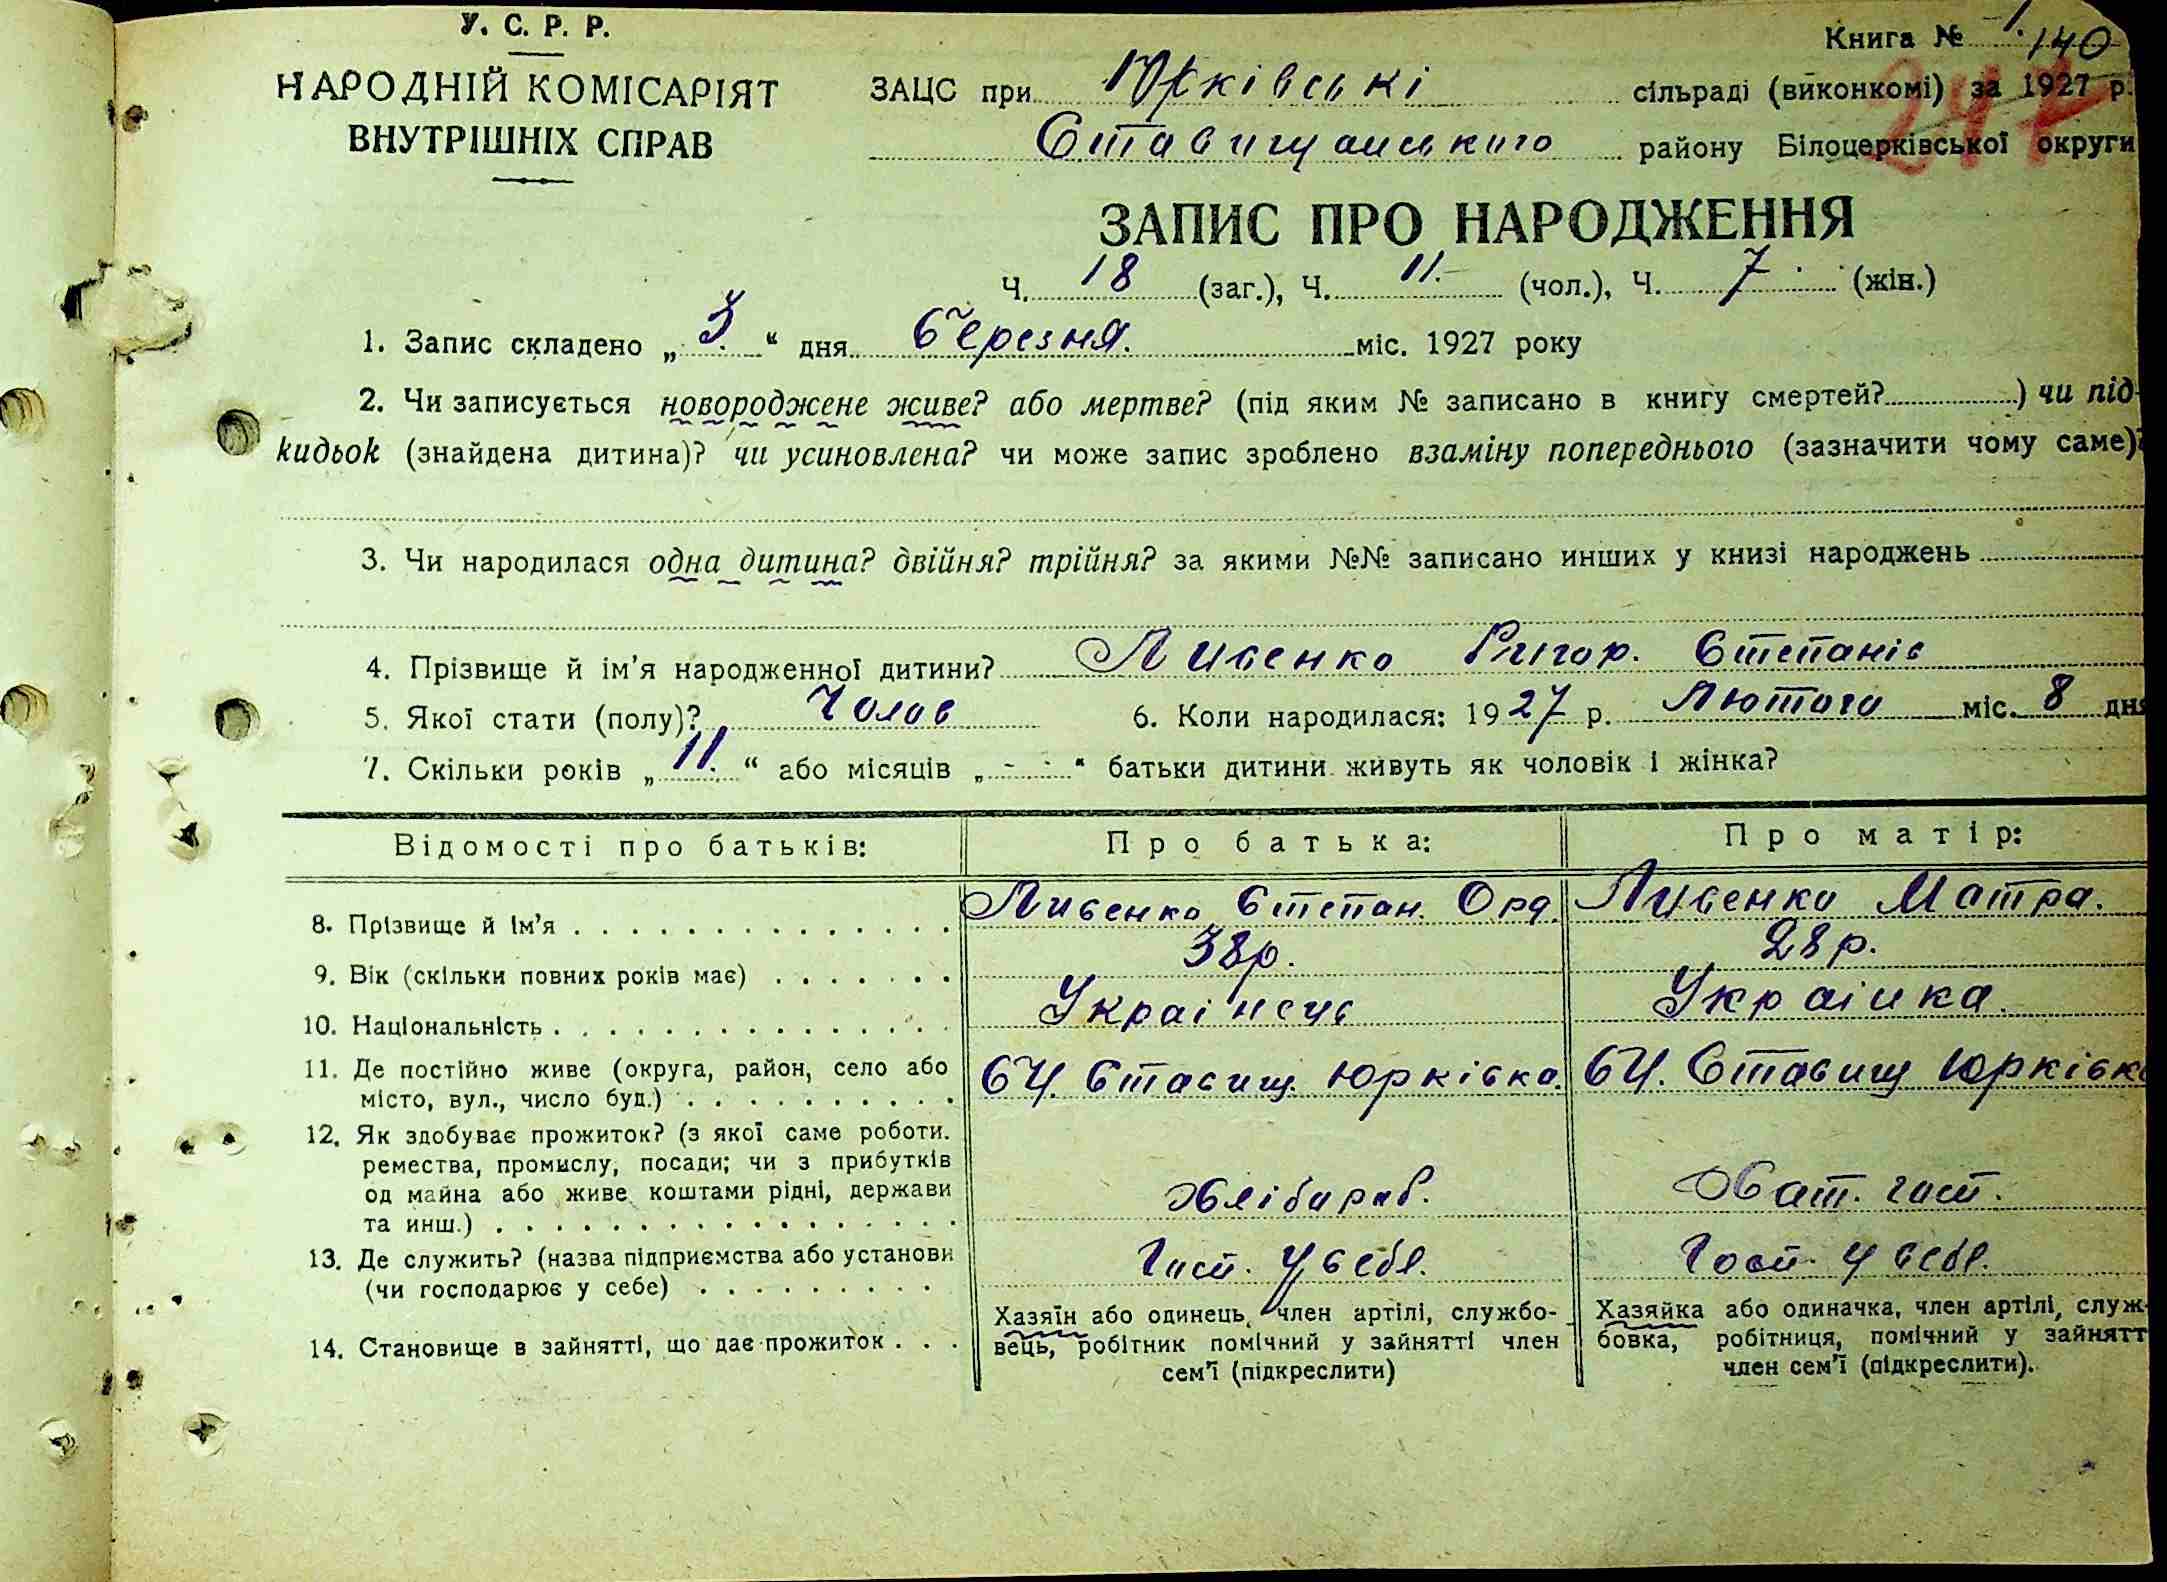 У. С. Р. Р.
НАРОДНІЙ КОМІСАРІЯТ
ВНУТРІШНІХ СПРАВ
Книга № 1. 140
ЗАЦС при Юрківські сільраді (виконкомі) за 1927 р.
Ставищанського району Білоцерківської округи
ЗАПИС ПРО НАРОДЖЕННЯ
Ч. 18 (заг.), Ч. 11. (чол.), Ч. 7 (жін.)
1. Запис складено „ 3 “ дня березня. міс. 1927 року
2. Чи записується новороджене живе? або мертве? (під яким № записано в книгу смертей? ) чи під-
кидьок (знайдена дитина)? чи усиновлена? чи може запис зроблено взаміну попереднього (зазначити чому саме)?
3. Чи народилася одна дитина? двійня? трійня? за якими №№ записано инших у книзі народжень
4. Прізвище й ім’я народженної дитини? Лисенко Григор. Степанів
5. Якої стати (полу)? Чолов 6. Коли народилася: 1927 р. Лютого міс. 8 дня
7. Скільки років „ 11. “ або місяців „ - “ батьки дитини живуть як чоловік і жінка?
Відомості про батьків: Про батька: Про матір:
8. Прізвище й ім’я Лисенко Степан. Орд. Лисенко Матра.
9. Вік (скільки повних років має) 38р. 28р.
10. Національність Українець Українка.
11. Де постійно живе (округа, район, село або
місто, вул., число буд.) БЦ. Ставищ. Юрківка. БЦ. Ставищ Юрківка
12. Як здобуває прожиток? (з якої саме роботи.
ремества, промислу, посади; чи з прибутків
од майна або живе коштами рідні, держави
та инш.) Хлібороб. Хат. госп.
13. Де служить? (назва підприємства або установи
(чи господарює у себе) Госп. у себе. Госп. у себе.
14. Становище в зайнятті, що дає прожиток
Хазяїн або одинець, член артілі, службо-
вець, робітник помічний у зайнятті член
сем’ї (підкреслити)
Хазяйка або одиначка, член артілі, служ-
бовка, робітниця, помічний у зайнятт
член сем’ї (підкреслити).